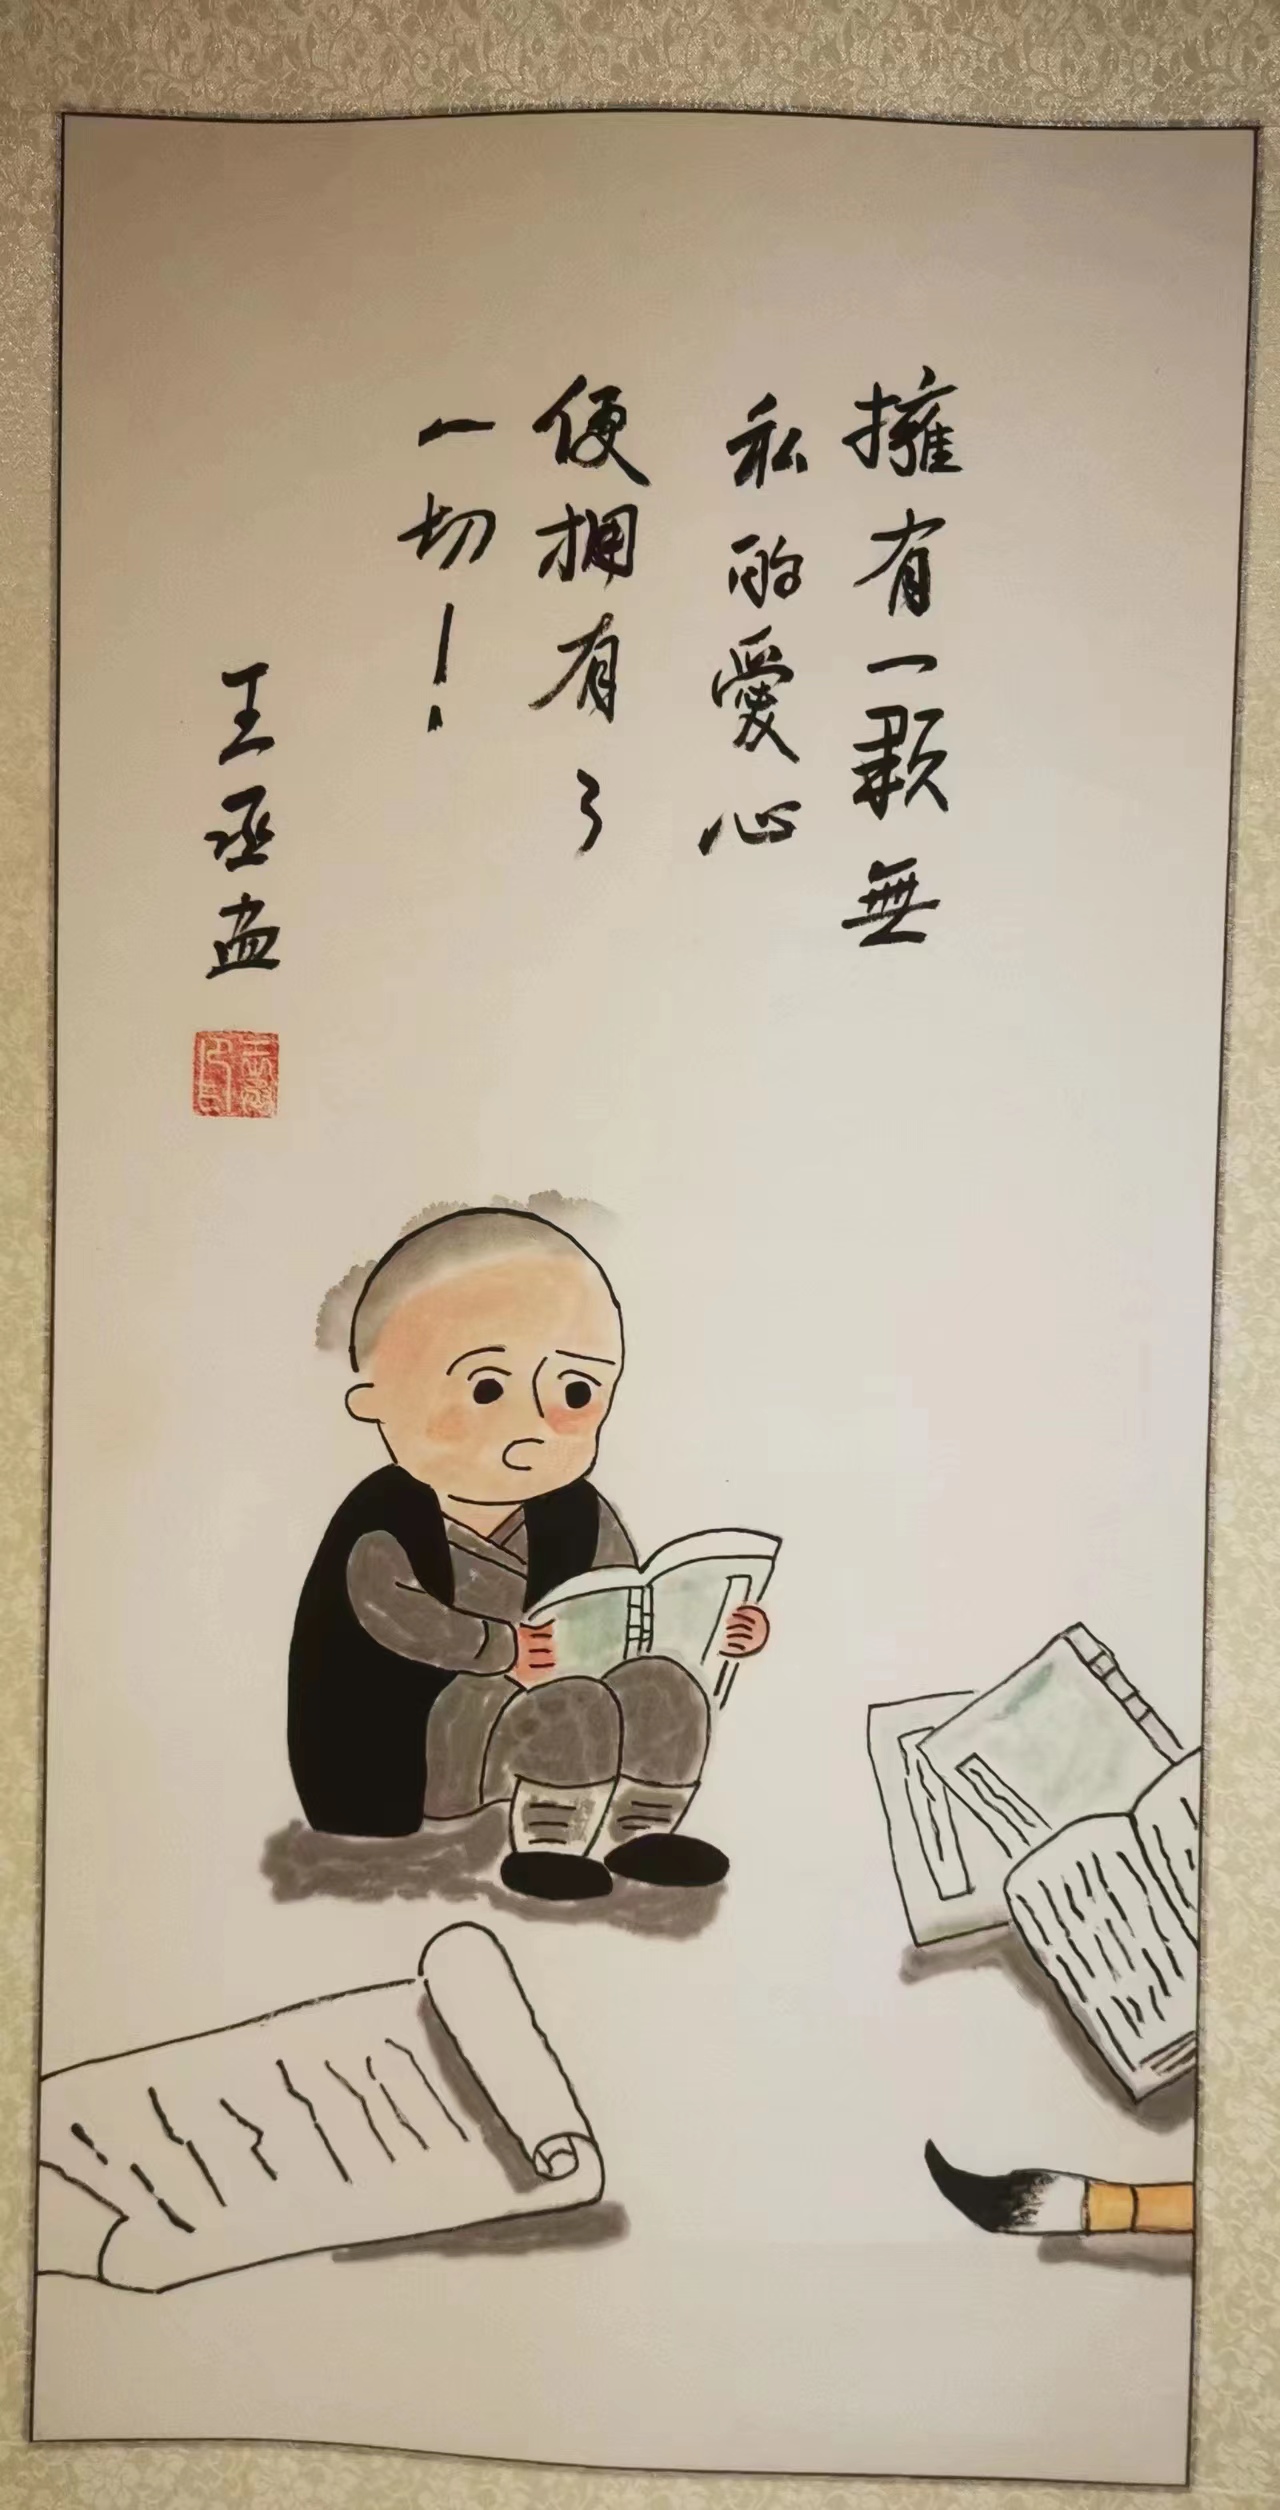 擁有一颗無
私的愛心
便拥有了
一切！
王丞画